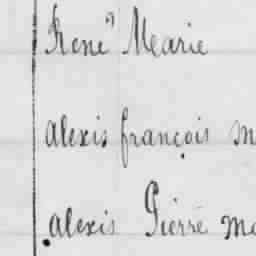 René Marie
alexis françois m
alexis Pierre ma